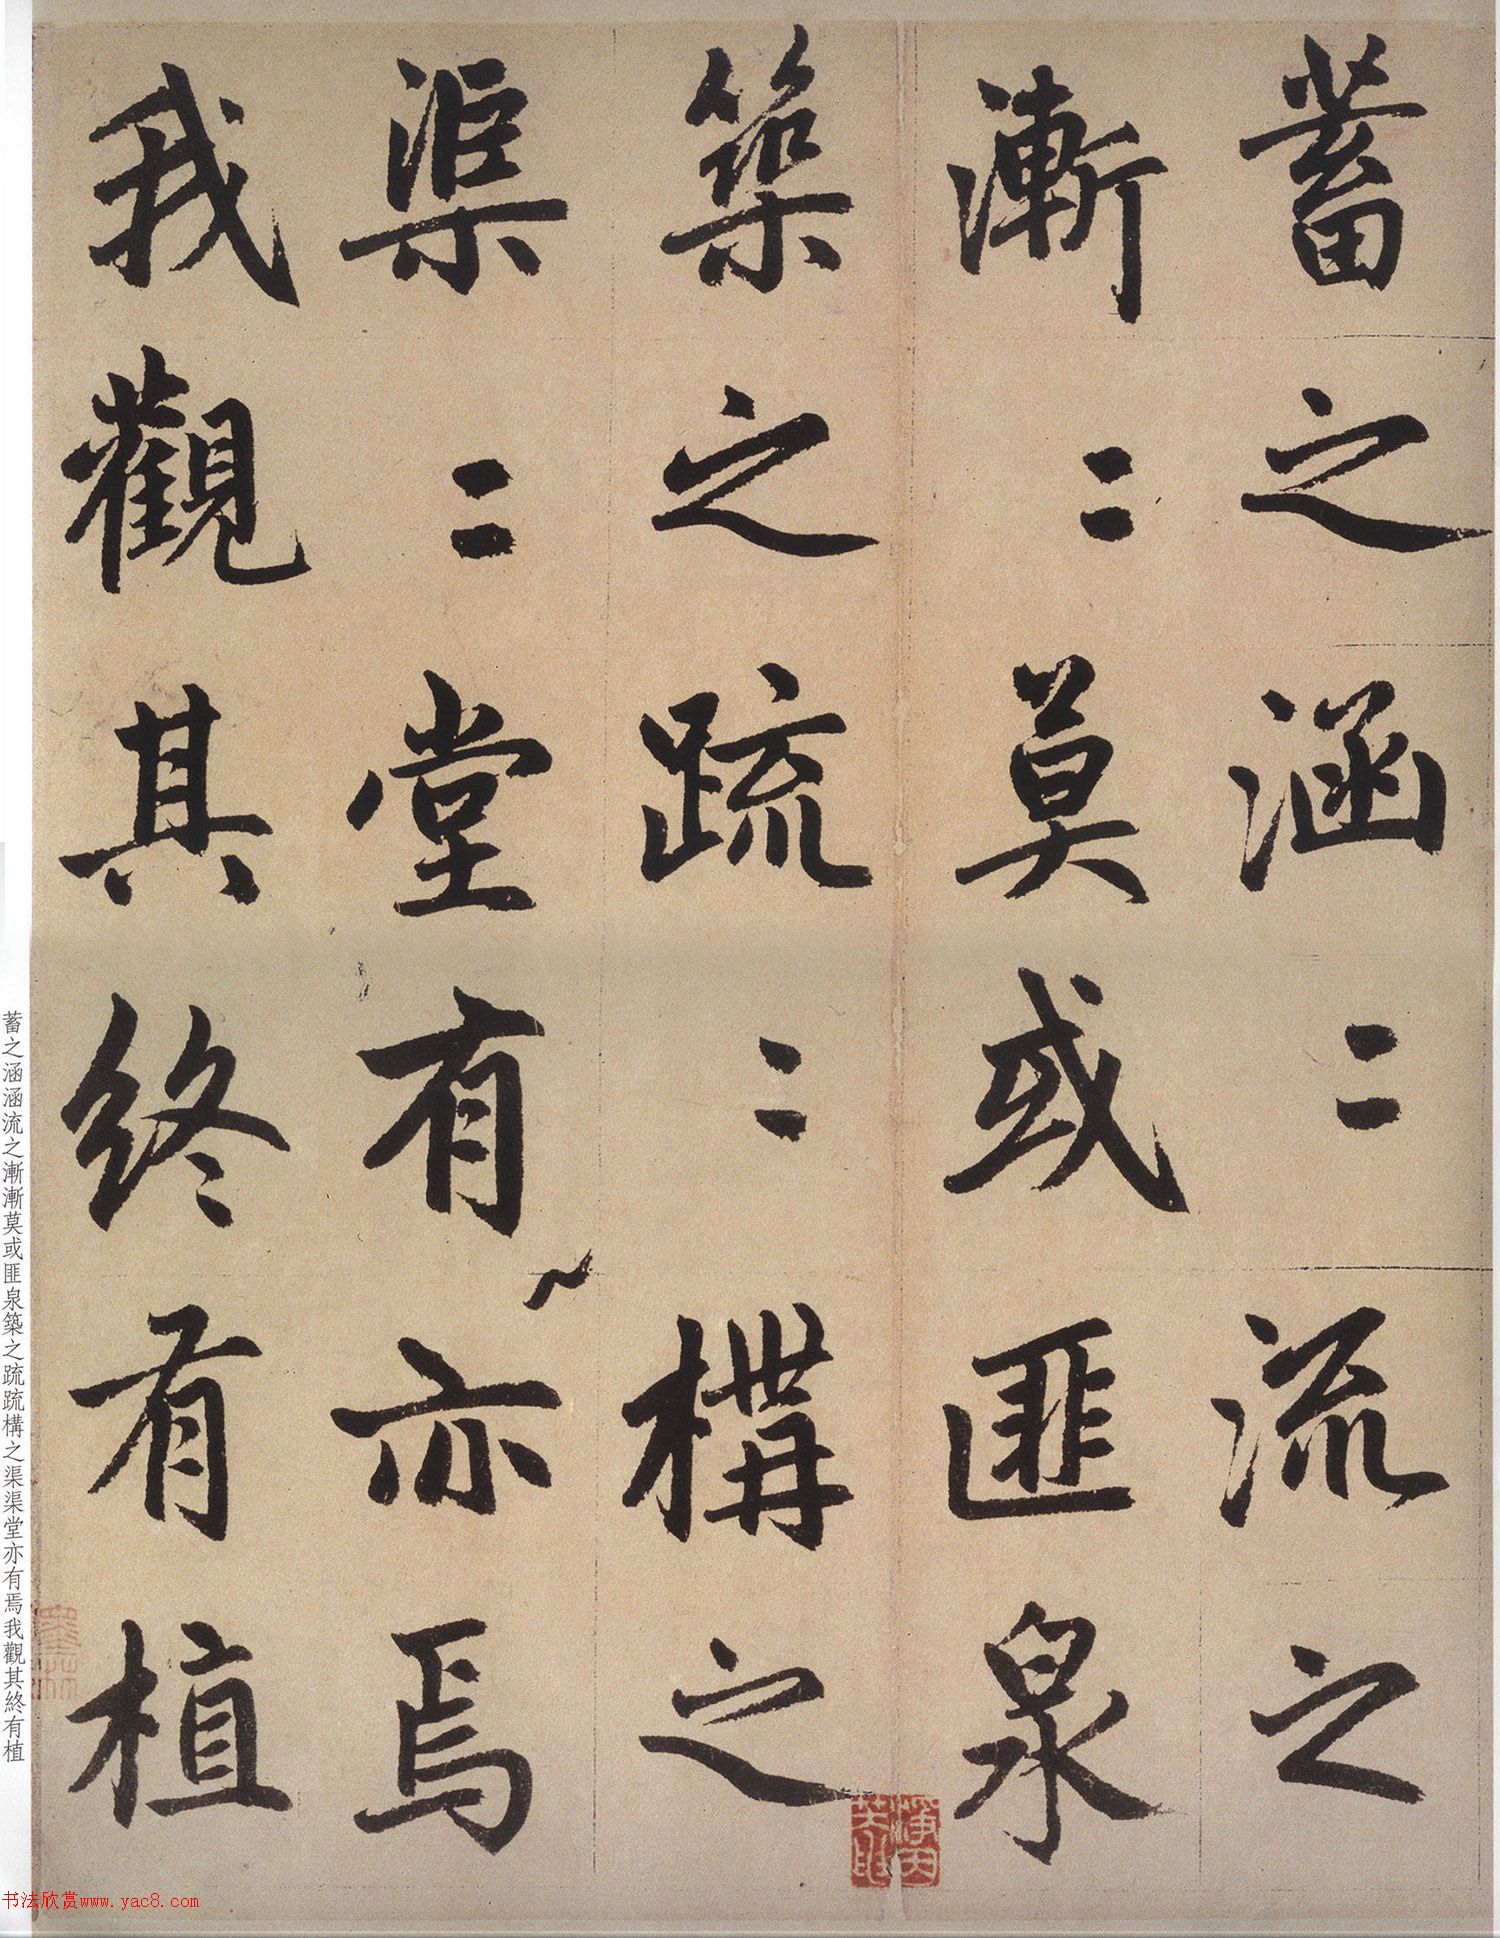 蓄之涵〻流之
漸〻莫或匪泉
築之疏〻構之
渠〻堂有亦焉
我觀其終有植
蓄之涵涵流之漸漸莫或匪泉築之疏疏構之渠渠堂亦有焉我觀其終有植
书法欣赏www.yac8.com